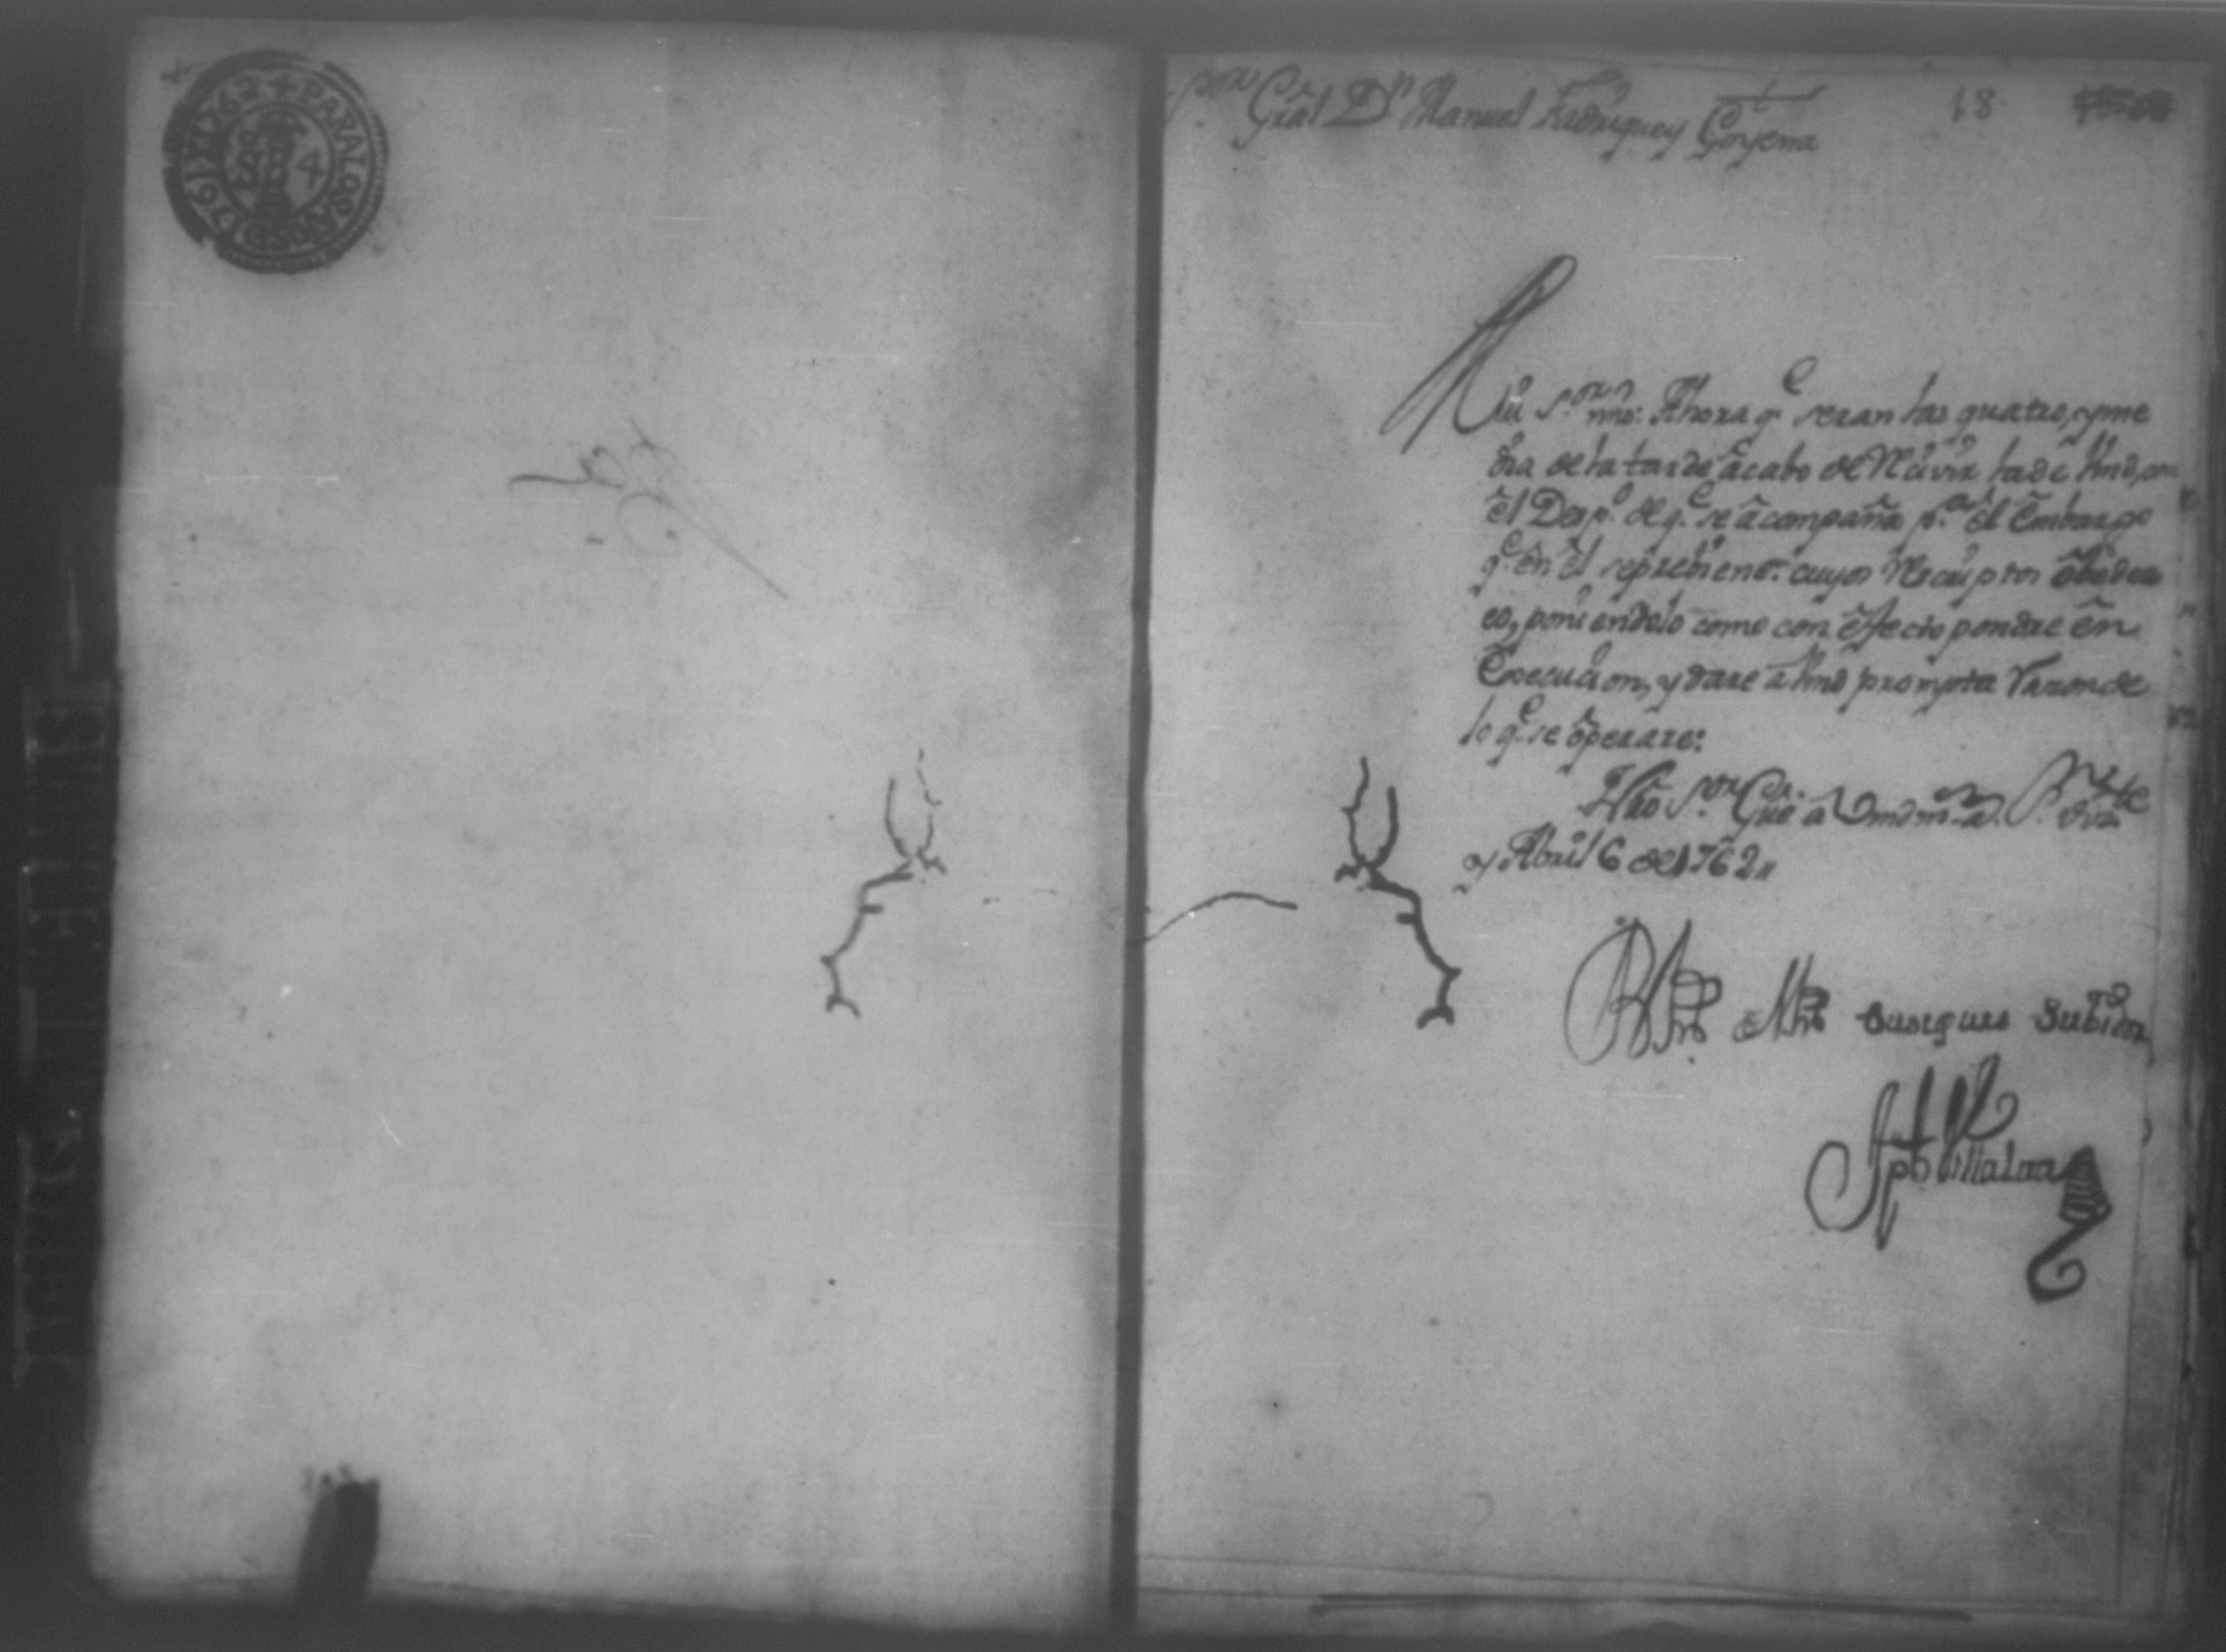 1761 Y 1762 + PARA LOS AÑOS D
4
S.or Grâl D.n Manuel Rodriguez Goyena
18
Mui S.or mio: Ahora q.e seran las quatro, y me
dia de la tarde acabo de Recivir la de Vmd, con
el Desp.o de q.e se acompaña p.a el Embargo
q.e en el se previene: cuyos Rescriptos obedez
co, poniendolo como con effecto pondre en
Execucion, y dare a Vmd prompta razon de
lo q.e se operare:
Nrô S.or Gûe a Vmd m.s a.s
y Abril 6 de 1762,,
su seguro Servidor
Jph Villalva